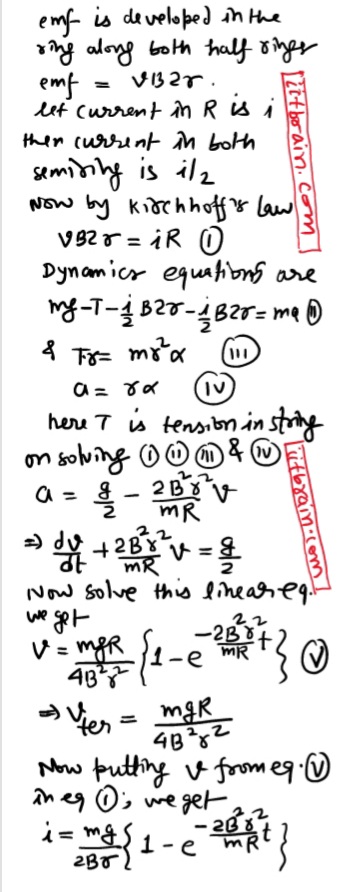 emf is developed in the
ring along both half rings
emf = vB2r.
let current in R is i
then current in both
semiring is i/2
Now by Kirchhoff's law
vB2r = iR (I)
Dynamics equations are
mg-T-i/2 B2r-i/2 B2r = ma (II)
& Tr = mr²α (III)
a = rα (IV)
here T is tension in string
on solving (I) (II) (III) & (IV)
a = g/2 - 2B²r²v/mR
⇒ dv/dt + 2B²r²/mR v = g/2
Now solve this linear eq.
we get
v = mgR/4B²r² {1 - e^(-2B²r²t/mR)} (V)
⇒ v_ter = mgR/4B²r²
Now putting v from eq.(V)
in eq (I); we get
i = mg/2Br {1 - e^(-2B²r²/mR t)}
iitbrain.com
iitbrain.com